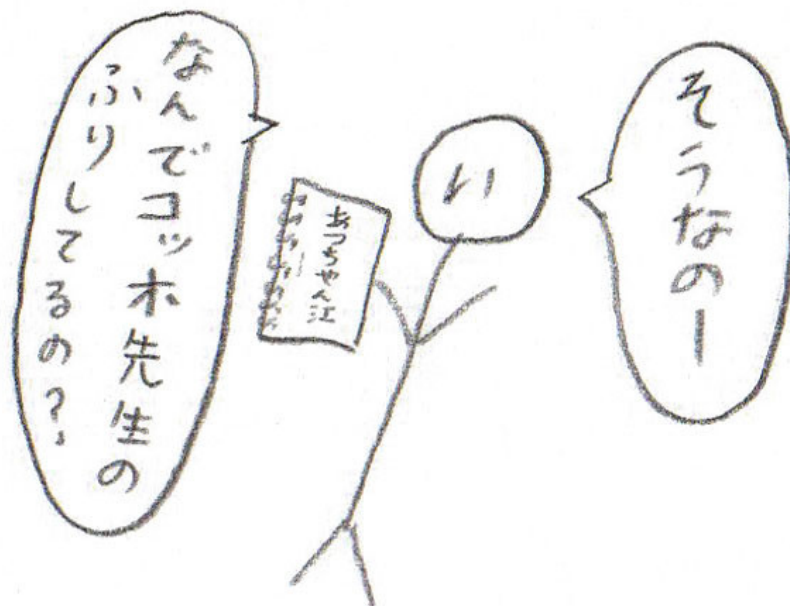 そうなのー
い
あっちゃん江
なんでコッホ先生の
ふりしてるの?